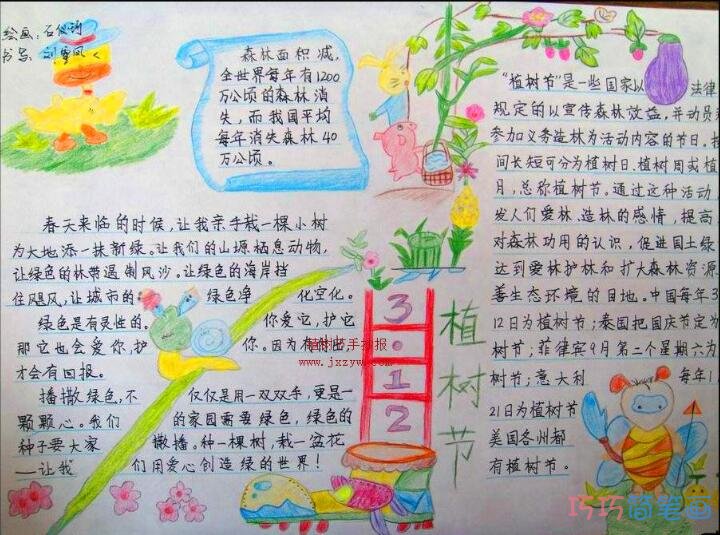 绘画：石
书写：刘
森林面积减，
全世界每年有1200
万公顷的森林消
失，而我国平均
每年消失森林40
万公顷。
“植树节”是一些国家以 法律
规定的以宣传森林效益，并动员
参加义务造林为活动内容的节日，按
间长短可分为植树日、植树周或植
月，总称植树节。通过这种活动
发人们爱林、造林的感情，提高
对森林功用的认识，促进国土绿
达到爱林护林和扩大森林资源
善生态环境的目地。中国每年3
12日为植树节；泰国把国庆节定为
树节；菲律宾9月第二个星期六为
树节；意大利 每年1
21日为植树节
美国各州都
有植树节。
春天来临的时候，让我亲手栽一棵小树
为大地添一抹新绿。让我们的山塬栖息动物，
让绿色的林带遏制风沙。让绿色的海岸挡
住飓风，让城市的 绿色净化空化。
绿色是有灵性的。 你爱它，护它
那它也会爱你，护 你。因为有付出
才会有回报。
播撒绿色，不 仅仅是用一双双手，更是一
颗颗心。我们 的家园需要绿色，绿色的
种子要大家 撒播。种一棵树，栽一盆花
——让我 们用爱心创造绿的世界！
3·12
植树节
www.jxzyw.com
巧巧简笔画